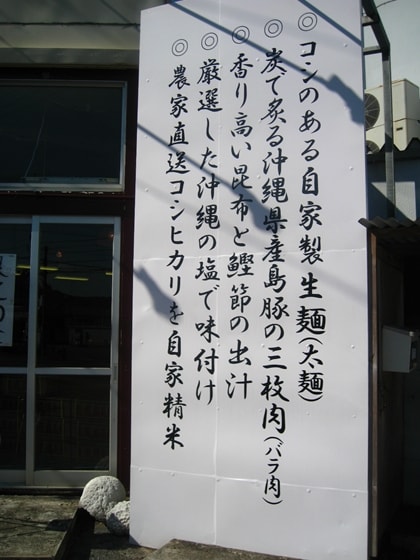 ◎コシのある自家製生麺(太麺)
◎炭て炙る沖縄県産島豚の三枚肉(バラ肉)
◎香り高い昆布と鰹節の出汁
◎厳選した沖縄の塩で味付け
◎農家直送コシヒカリを自家精米